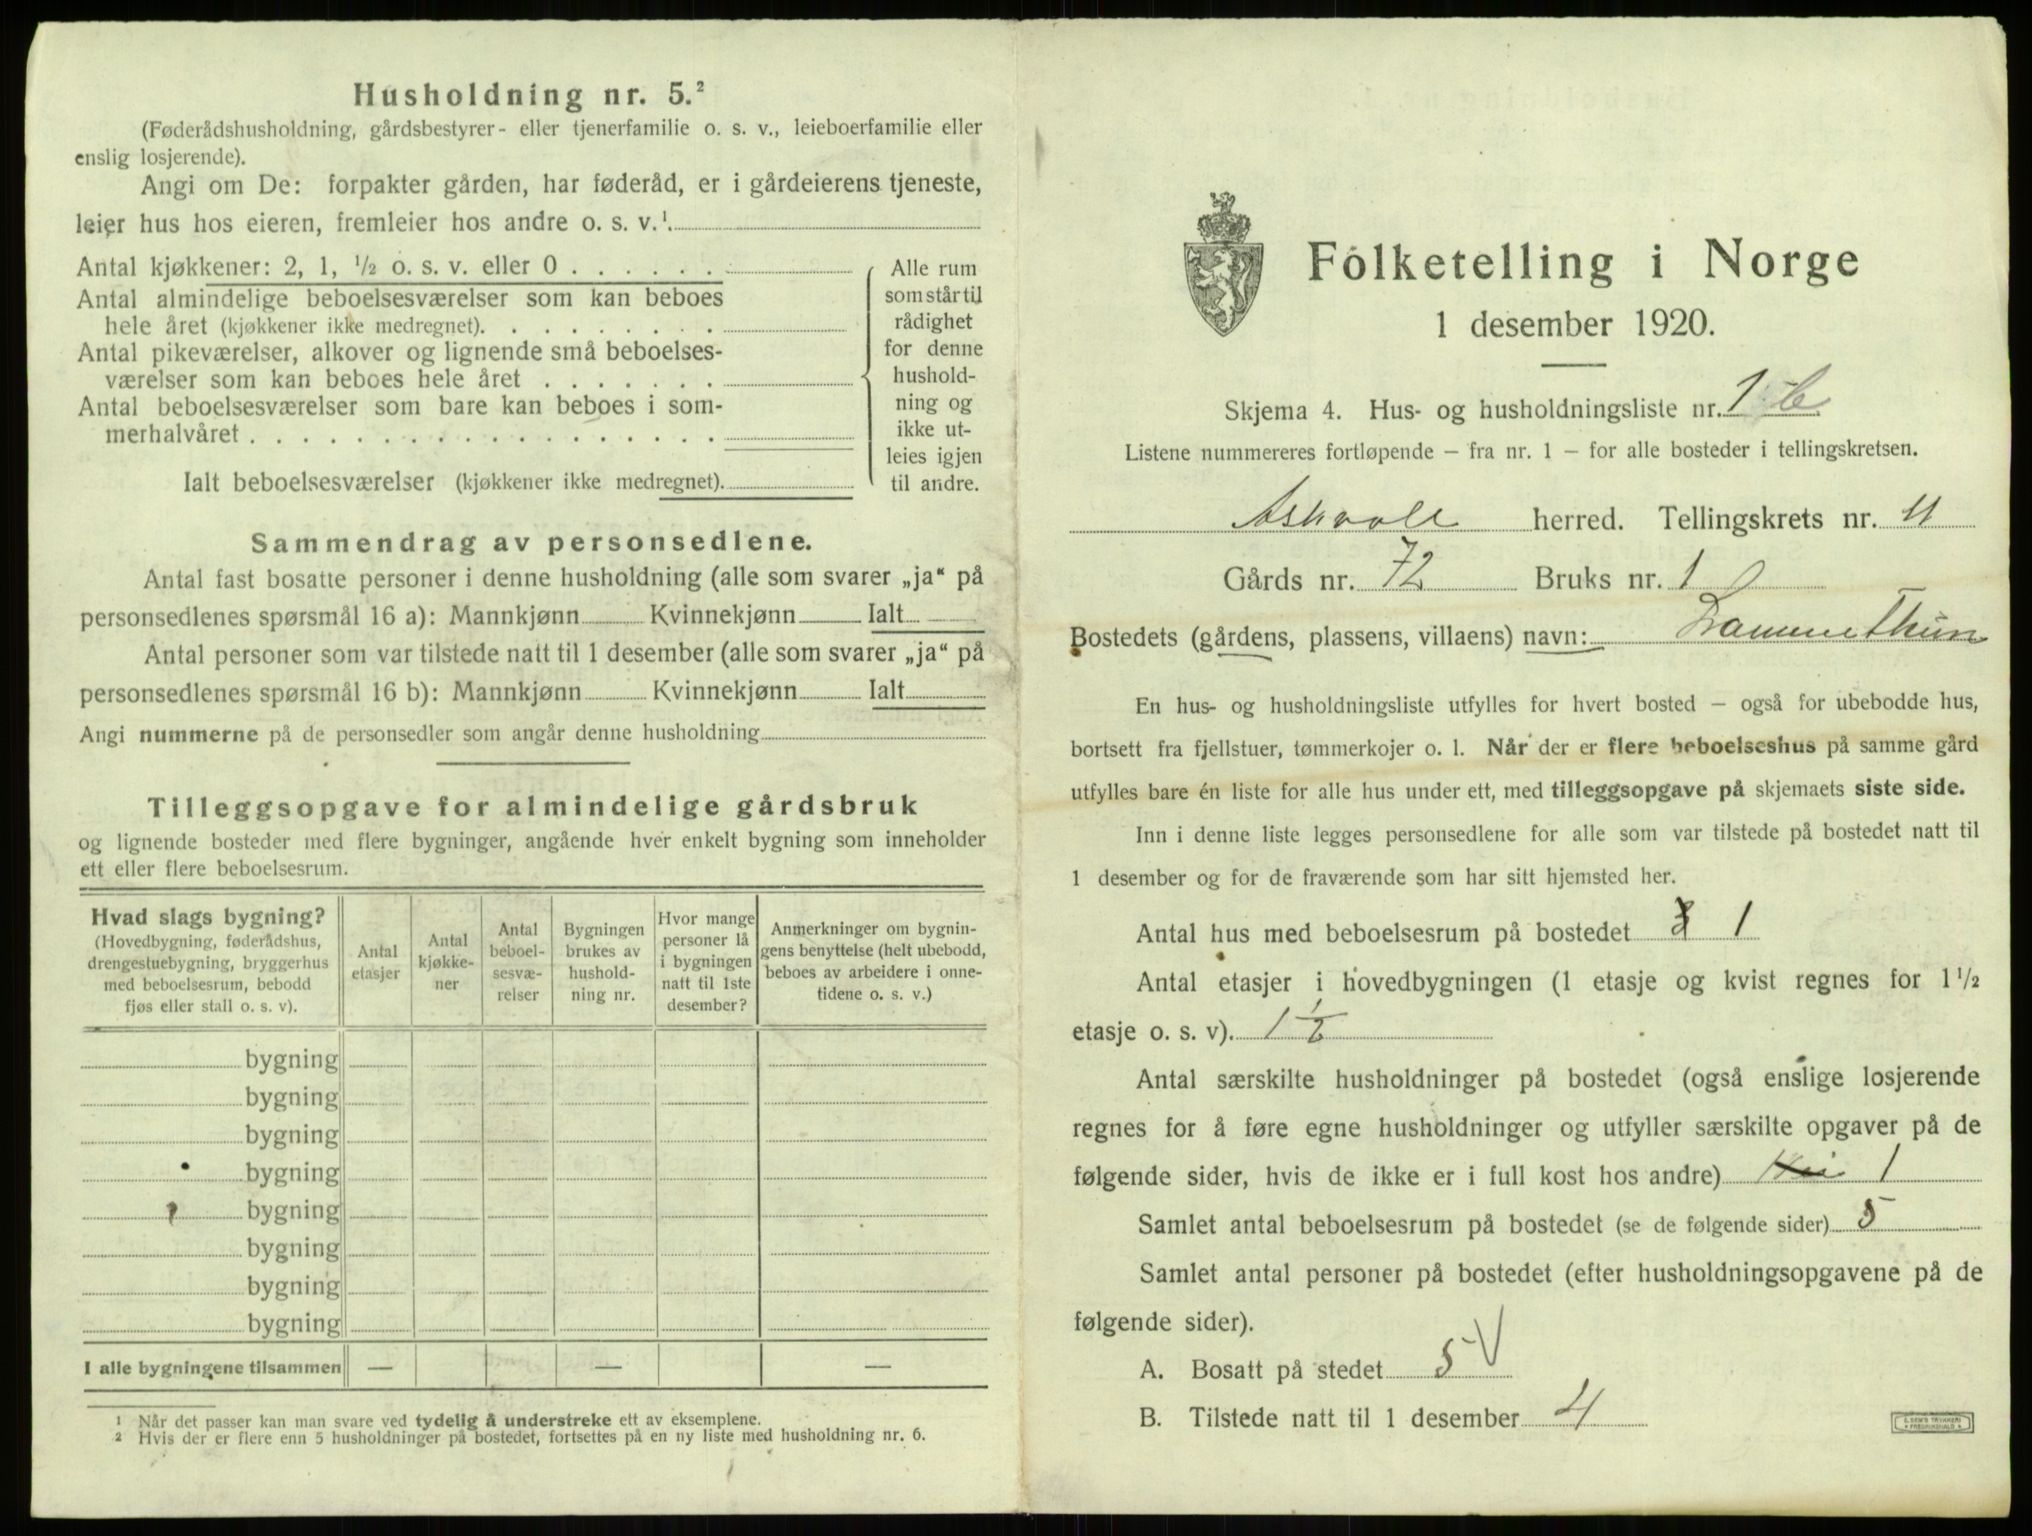 Husholdning nr. 5.²
(Føderådshusholdning, gårdsbestyrer- eller tjenerfamilie o. s. v., leieboerfamilie eller
enslig losjerende).
Angi om De: forpakter gården, har føderåd, er i gårdeierens tjeneste,
leier hus hos eieren, fremleier hos andre o. s. v.¹
Antal kjøkkener: 2, 1, ½ o. s. v. eller 0 . . . . . .
Antal almindelige beboelsesværelser som kan beboes
hele året (kjøkkener ikke medregnet). . . . . . . . .
Antal pikeværelser, alkover og lignende små beboelses-
værelser som kan beboes hele året . . . . . . .
Antal beboelsesværelser som bare kan beboes i som-
merhalvåret . . . . . . . . . . . . . . . . . .
Ialt beboelsesværelser (kjøkkener ikke medregnet).
Alle rum
som står til
rådighet
for denne
hushold-
ning og
ikke ut-
leies igjen
til andre.
Sammendrag av personsedlene.
Antal fast bosatte personer i denne husholdning (alle som svarer „ja“ på
personsedlenes spørsmål 16 a): Mannkjønn Kvinnekjønn Ialt
Antal personer som var tilstede natt til 1 desember (alle som svarer „ja“ på
personsedlenes spørsmål 16 b): Mannkjønn Kvinnekjønn Ialt
Angi nummerne på de personsedler som angår denne husholdning
Tilleggsopgave for almindelige gårdsbruk
og lignende bosteder med flere bygninger, angående hver enkelt bygning som inneholder
ett eller flere beboelsesrum.
Hvad slags bygning?
(Hovedbygning, føderådshus,
drengestuebygning, bryggerhus
med beboelsesrum, bebodd
fjøs eller stall o. s. v).
Antal
etasjer
Antal
kjøkke-
ner
Antal
beboel-
sesvæ-
relser
Bygningen
brukes av
hushold-
ning nr.
Hvor mange
personer lå
i bygningen
natt til 1ste
desember?
Anmerkninger om bygnin-
gens benyttelse (helt ubebodd,
beboes av arbeidere i onne-
tidene o. s. v.)
bygning
bygning
bygning
bygning
bygning
bygning
bygning
bygning
I alle bygningene tilsammen — — —
¹ Når det passer kan man svare ved tydelig å understreke ett av eksemplene.
² Hvis der er flere enn 5 husholdninger på bostedet, fortsettes på en ny liste med husholdning nr. 6.
Folketelling i Norge
1 desember 1920.
Skjema 4. Hus- og husholdningsliste nr. 1 b
Listene nummereres fortløpende – fra nr. 1 – for alle bosteder i tellingskretsen.
Askvoll herred. Tellingskrets nr. 11
Gårds nr. 72 Bruks nr. 1
Bostedets (gårdens, plassens, villaens) navn:
En hus- og husholdningsliste utfylles for hvert bosted – også for ubebodde hus,
bortsett fra fjellstuer, tømmerkojer o. l. Når der er flere beboelseshus på samme gård
utfylles bare én liste for alle hus under ett, med tilleggsopgave på skjemaets siste side.
Inn i denne liste legges personsedlene for alle som var tilstede på bostedet natt til
1 desember og for de fraværende som har sitt hjemsted her.
Antal hus med beboelsesrum på bostedet 1
Antal etasjer i hovedbygningen (1 etasje og kvist regnes for 1 ½
etasje o. s. v). 1 ½
Antal særskilte husholdninger på bostedet (også enslige losjerende
regnes for å føre egne husholdninger og utfyller særskilte opgaver på de
følgende sider, hvis de ikke er i full kost hos andre) 1
Samlet antal beboelsesrum på bostedet (se de følgende sider) 5
Samlet antal personer på bostedet (efter husholdningsopgavene på de
følgende sider).
A. Bosatt på stedet 5 V
B. Tilstede natt til 1 desember 4